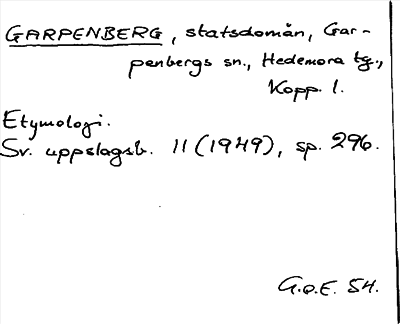 GARPENBERG, statsdomän, Gar-
penbergs sn., Hedemora tg.,
Kopp. l.
Etymologi.
Sv. uppslagsb. 11 (1949), sp. 296.
G.o.E. 54.